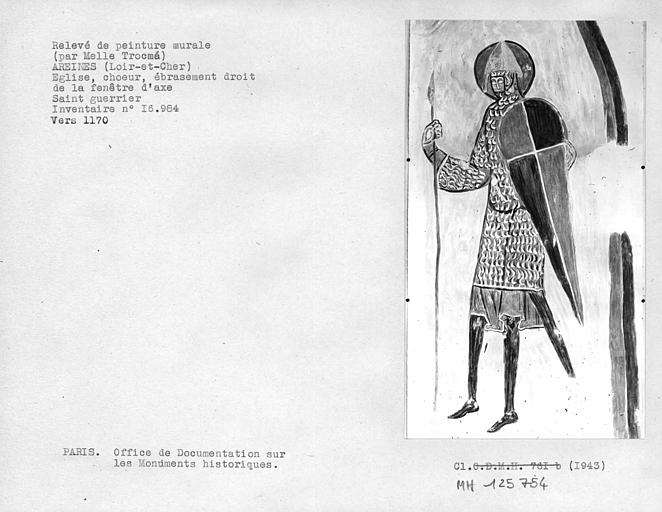 Relevé de peinture murale
(par Melle Trocmé)
AREINES (Loir-et-Cher)
Eglise, choeur, ébrasement droit
de la fenêtre d'axe
Saint guerrier
Inventaire n° I6.984
Vers 1170
PARIS. Office de Documentation sur
les Monuments historiques.
Cl.C.D.M.H. 761 b (I943)
MH 125 754